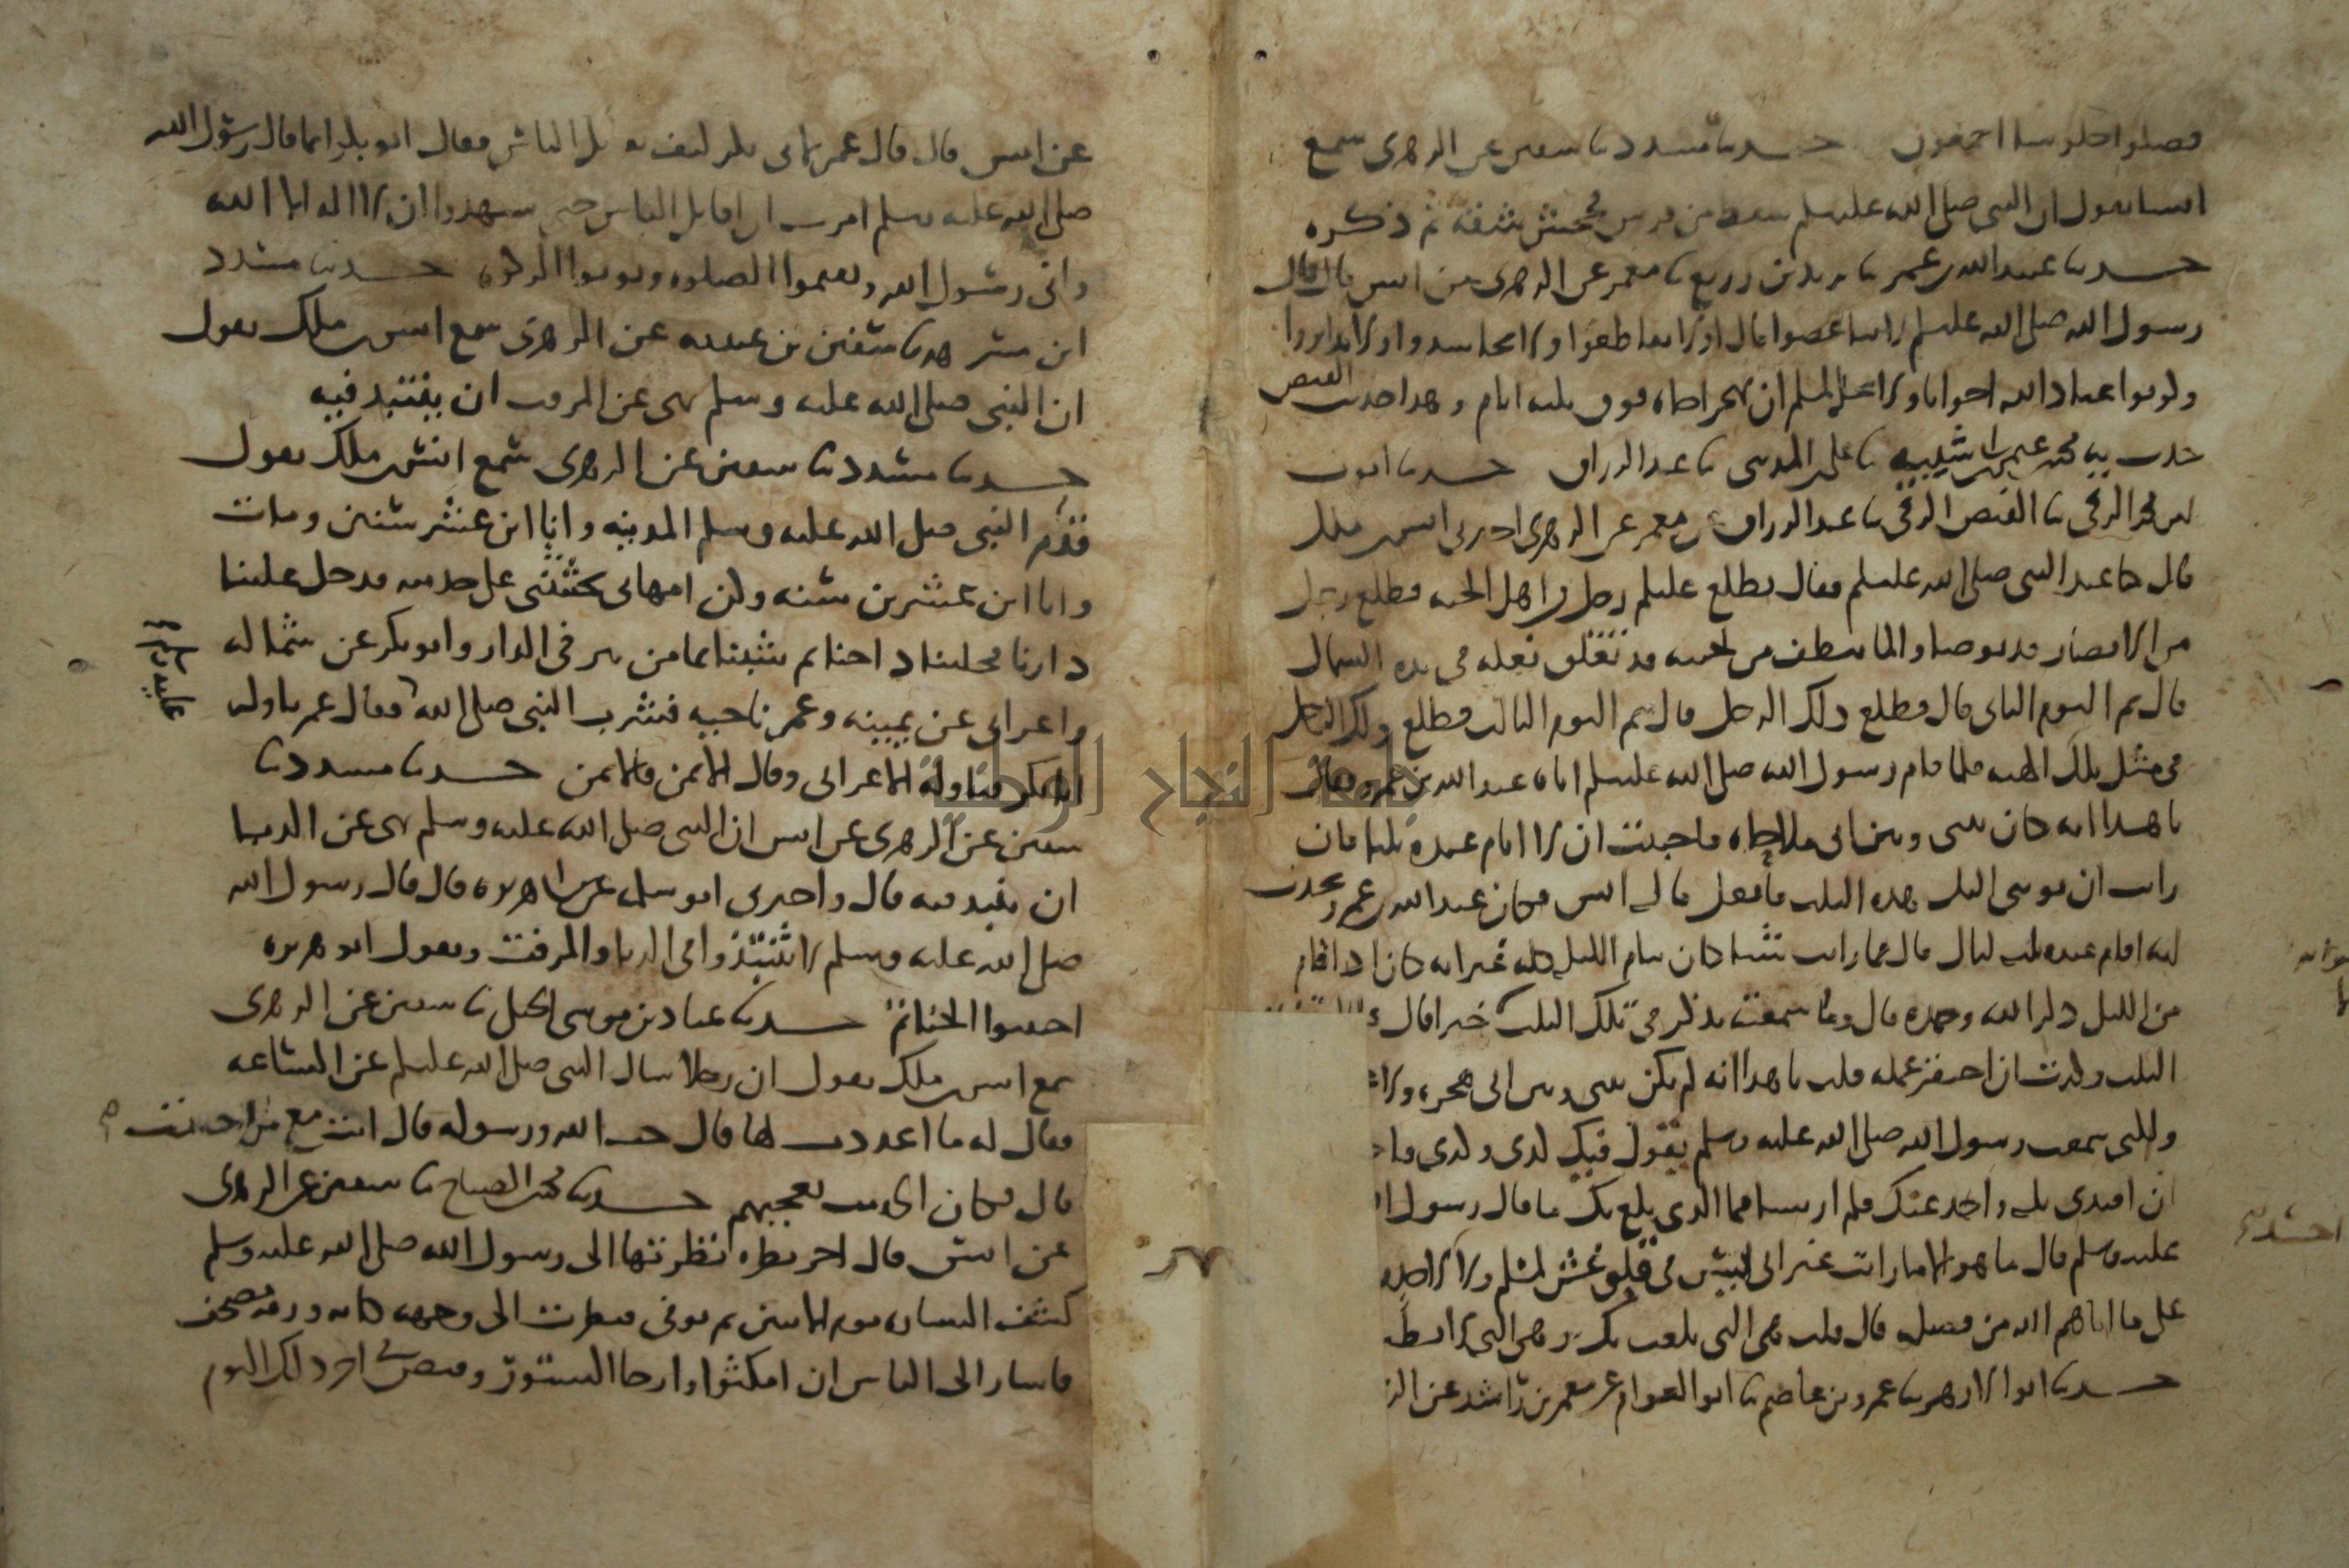 فصلوا جلوسا اجمعون حدثنا مسدد نا سفين عن الزهري سمع
انسا يقول ان النبي صلى الله عليه وسلم سقط من فرس فجحش شقه ثم ذكره
حدثنا عبد الله بن عمر نا يزيد بن زريع نا معمر عن الزهري عن انس قال قال
رسول الله صلى الله عليه وسلم لا تباغضوا قال او لا تقاطعوا ولا تحاسدوا ولا تدابروا
وكونوا عباد الله اخوانا ولا يحل لمسلم ان يهجر اخاه فوق ثلثة ايام وهذا حديث الفيض
حدث به محمد بن عثمن بن ابي شيبة نا علي المديني نا عبد الرزاق حدثنا ايوب
بن محمد الرقي نا الفيض الرقي نا عبد الرزاق عن معمر عن الزهري اخبرني انس بن ملك
قال كنا عند النبي صلى الله عليه وسلم فقال يطلع عليكم رجل من اهل الجنة فطلع رجل
من الانصار قد توضا والما ينطف من لحيته قد تعلق نعله في يده الشمال
قال ثم اليوم الثاني قال فطلع ذلك الرجل قال ثم اليوم الثالث فطلع ذلك الرجل
في مثل تلك الهيئة فلما قام رسول الله صلى الله عليه وسلم اتاه عبد الله بن عمرو فقال
يا هذا انه كان بيني وبين ابي ملاحاة فاحببت ان لا ايام عنده ثلثا فان
رايت ان تؤويني اليك هذه الثلث فافعل قال انس فكان عبد الله بن عمرو يحدث
انه اقام عنده ثلث ليال قال فما رايت شيا كان ينام الليل كله غير انه كان اذا قام
من الليل ذكر الله وحمده قال وما سمعت يذكر في تلك الثلث خيرا قال
الثلث وكدت ان احتقر عمله قلت يا هذا انه لم يكن بيني وبين ابي هجرة ولا
ولكني سمعت رسول الله صلى الله عليه وسلم يقول فيك كذي وكذي
ان اقتدي بك واخذ عنك فلم ار شيا فما الذي بلغ بك ما قال رسول
عليه وسلم قال ما هو الا ما رايت غير اني ليس في قلبي غش لمسلم ولا احسده
على ما اتاهم الله من فضله قال قلت هي التي بلغت بك وهي التي لا
حدثنا ابو الازهر نا عمرو بن عاصم نا ابو العوام عن معمر بن راشد عن
عن انس قال قال عمر يا ابي بكر كيف نقاتل الناس فقال ابو بكر انما قال رسول الله
صلى الله عليه وسلم امرت ان اقاتل الناس حتى يشهدوا ان لا اله الا الله
واني رسول الله ويقيموا الصلوة ويوتوا الزكوة حدثنا مسدد
ابن مسرهد نا سفين بن عيينة عن الزهري سمع انس بن ملك يقول
ان النبي صلى الله عليه وسلم نهى عن المزفت ان ينتبذ فيه
حدثنا مسدد نا سفين عن الزهري سمع انس بن ملك يقول
قدم النبي صلى الله عليه وسلم المدينة وانا ابن عشر سنين ومات
وانا ابن عشرين سنة وكن امهاتي يحثثنني على خدمته فدخل علينا
دارنا فحلبنا داجنا ثم شبنا بما من بير في الدار وابو بكر عن شماله
واعرابي عن يمينه وعمر ناحية فشرب النبي صلى الله فقال عمر ناوله
عليه وسلم
ابا بكر فناوله الاعرابي وقال الايمن فالايمن حدثنا مسدد نا
سفين عن الزهري عن انس ان النبي صلى الله عليه وسلم نهى عن الدبا
ان ينبذ فيه قال واخبرني ابو سلمة عن ابي هريرة قال قال رسول الله
صلى الله عليه وسلم لا تنتبذوا في الدبا والمزفت ويقول ابو هريرة
اجتنبوا الحناتم حدثنا عباد بن موسى الختلي نا سفين عن الزهري
سمع انس بن ملك يقول ان رجلا سال النبي صلى الله عليه وسلم عن الساعة
فقال له ما اعددت لها قال حب الله ورسوله قال انت مع من احببت
قال فكان الحديث يعجبهم حدثنا محمد بن الصباح نا سفين عن الزهري
عن انس قال اخر نظرة نظرتها الى رسول الله صلى الله عليه وسلم
كشف الستارة يوم الاثنين ثم توفي فنظرت الى وجهه كانه ورقة مصحف
فاشار الى الناس ان امكثوا وارخا الستور وقبض في اخر ذلك اليوم
جامعة النجاح الوطنية